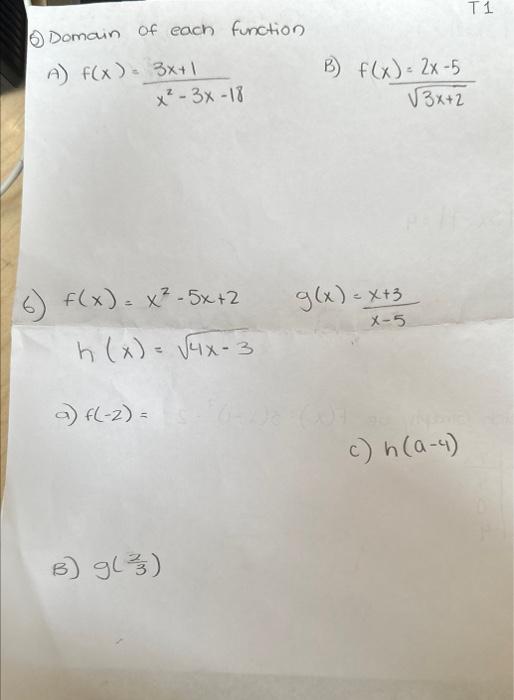 T1
5) Domain of each function
A) f(x) = 3x+1 / x² - 3x - 18
B) f(x) = 2x - 5 / √3x+2
6) f(x) = x² - 5x + 2
g(x) = x+3 / x-5
h(x) = √4x - 3
a) f(-2) =
c) h(a-4)
B) g(2/3)